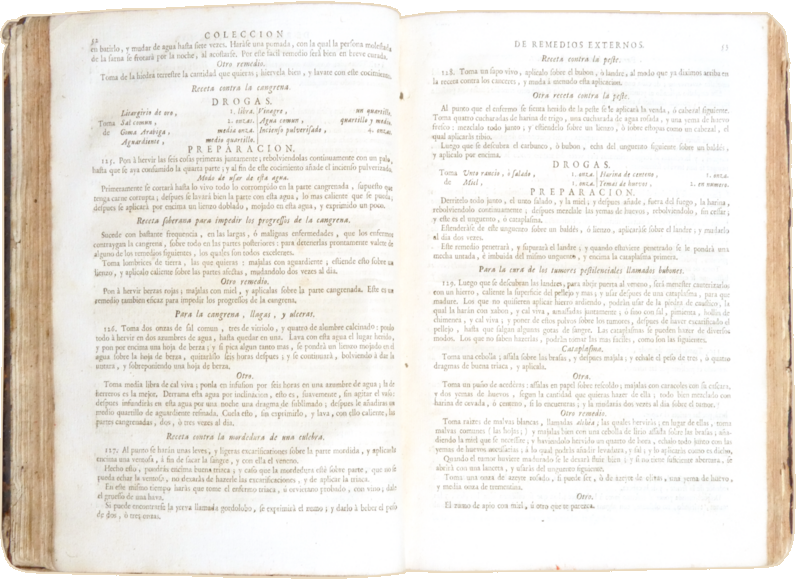 52
COLECCION
en batirlo, y mudar de agua hasta siete vezes. Haráse una pomada, con la qual la persona molestada
de la sarna se frotará por la noche, al acostarse. Por este facil remedio será bien en breve curada.
Otro remedio.
Toma de la hiedra terrestre la cantidad que quieras; hiervela bien, y lavate con este cocimiento.
Receta contra la cangrena.
DROGAS.
Toma Litargirio de oro, 1. libra.
Sal comun, 2. onzas.
Goma Arabiga, media onza.
Aguardiente, medio quartillo.
Vinagre, un quartillo.
Agua comun, quartillo y medio.
Incienso pulverizado, 4. onzas.
PREPARACION.
125. Pon á hervir las seis cosas primeras juntamente; rebolviendolas continuamente con un palo,
hasta que se aya consumido la quarta parte; y al fin de este cocimiento añade el incienso pulverizado.
Modo de usar de esta agua.
Primeramente se cortará hasta lo vivo todo lo corrompido en la parte cangrenada, supuesto que
tenga carne corrupta; despues se lavará bien la parte con esta agua, lo mas caliente que se pueda;
despues se aplicará por encima un lienzo doblado, mojado en esta agua, y exprimido un poco.
Receta soberana para impedir los progressos de la cangrena.
Sucede con bastante frequencia, en las largas, ó malignas enfermedades, que los enfermos
contraygan la cangrena, sobre todo en las partes posteriores: para detenerlas prontamente valete de
alguno de los remedios siguientes, los quales son todos excelentes.
Toma lombrices de tierra, las que quieras: majalas con aguardiente; estiende esto sobre un
lienzo, y aplicalo caliente sobre las partes afectas, mudandolo dos vezes al dia.
Otro remedio.
Pon á hervir berzas rojas; majalas con miel, y aplicalas sobre la parte cangrenada. Este es un
remedio tambien eficaz para impedir los progressos de la cangrena.
Para la cangrena, llagas, y ulceras.
126. Toma dos onzas de sal comun, tres de vitriolo, y quatro de alumbre calcinado; ponlo
todo á hervir en dos azumbres de agua, hasta quedar en una. Lava con esta agua el lugar herido,
y pon por encima una hoja de berza; y si pica algun tanto mas, se pondrá un lienzo mojado en el
agua sobre la hoja de berza, quitaráslo seis horas despues; y se continuará, bolviendo á dar la
untura, y sobreponiendo una hoja de berza.
Otro.
Toma media libra de cal viva; ponla en infusion por seis horas en una azumbre de agua; la de
herreros es la mejor. Derrama esta agua por inclinacion, esto es, suavemente, sin agitar el vaso:
despues infundirás en esta agua por una noche una dragma de sublimado; despues le añadirás un
medio quartillo de aguardiente refinada. Cuela esto, sin exprimirlo, y lava, con ello caliente, las
partes cangrenadas, dos, ó tres vezes al dia.
Receta contra la mordedura de una culebra.
127. Al punto se harán unas leves, y ligeras escarificaciones sobre la parte mordida, y aplicarás
encima una ventosa, á fin de sacar la sangre, y con ella el veneno.
Hecho esto, pondrás encima buena triaca; y caso que la mordedura esté sobre parte, que no se
pueda echar la ventosa, no dexarás de hazerle las escarificaciones, y de aplicar la triaca.
En este mismo tiempo harás que tome el enfermo triaca, ú orvietano probado, con vino; dale
el gruesso de una hava.
Si puede encontrarse la yerva llamada gordolobo, se exprimirá el zumo; y darlo á beber el peso
de dos, ó tres onzas.
DE REMEDIOS EXTERNOS.
53
Receta contra la peste.
128. Toma un sapo vivo, aplicalo sobre el bubon, ó landre, al modo que ya diximos arriba en
la receta contra los canceres, y muda á menudo esta aplicacion.
Otra receta contra la peste.
Al punto que el enfermo se sienta herido de la peste se le aplicará la venda, ó cabezal siguiente.
Toma quatro cucharadas de harina de trigo, una cucharada de agua rosada, y una yema de huevo
fresco: mezclalo todo junto; y estiendelo sobre un lienzo, ó sobre estopas como un cabezal, el
qual aplicarás tibio.
Luego que se descubra el carbunco, ó bubon, echa del unguento siguiente sobre un baldés,
y aplicalo por encima.
DROGAS.
Toma Unto rancio, ó salado, 1. onza.
de Miel, 1. onza.
Harina de centeno, 1. onza.
Yemas de huevos, 2. en numero.
PREPARACION.
Derritelo todo junto, el unto salado, y la miel; y despues añade, fuera del fuego, la harina,
rebolviendolo continuamente; despues mezclale las yemas de huevos, rebolviendolo, sin cessar;
y este es el unguento, ó cataplasma.
Estenderás de este unguento sobre un baldés, ó lienzo, aplicarás sobre el landre; y mudarlo
al dia dos vezes.
Este remedio penetrará, y supurará el landre; y quando estuviere penetrado se le pondrá una
mecha untada, e imbuida del mismo unguento, y encima la cataplasma primera.
Para la cura de los tumores pestilenciales llamados bubones.
129. Luego que se descubran los landres, para abrir puerta al veneno, será menester cauterizarlos
con un hierro, caliente la superficie del pellejo y mas; y usar despues de una cataplasma, para que
madure. Los que no quisieren aplicar hierro ardiendo, podrán usar de la piedra de cauterio, la
qual la harán con xabon, y cal viva, amassados juntamente; ó sino con sal, pimienta, hollin de
chimenea, y cal viva; y poner de estos polvos sobre los tumores, despues de haver escarificado el
pellejo, hasta que salgan algunas gotas de sangre. Las cataplasmas se pueden hazer de diversos
modos. Los que no sabes hazerlas, podrán tomar las mas faciles, como son las siguientes.
Cataplasma.
Toma una cebolla; assala sobre las brasas, y despues majala; y echale el peso de tres, ó quatro
dragmas de buena triaca, y aplicala.
Otra.
Toma un puño de acederas: assalas en papel sobre rescoldo; majalas con caracoles con su cascara,
y dos yemas de huevos, segun la cantidad que quieras hazer de ella; todo bien mezclado con
harina de cevada, ó centeno, si ha escarnituras; y la mudarás dos vezes al dia sobre el tumor.
Otro remedio.
Toma raizes de malvas blancas, llamadas althéa; las quales hervirás; en lugar de ellas, toma
malvas comunes (las hojas;) y majalas bien con una cebolla de lirio assada sobre las brasas, añadiendo
la miel que se necessite; y haviendolo hervido un quarto de hora, echalo todo junto con las
yemas de huevos necessarias; á lo qual podrás añadir levadura, y sal; y lo aplicarás como es dicho.
Quando el tumor huviere madurado se le dexará fluir bien; y si no tiene suficiente abertura, se
abrirá con una lanceta, y usarás del unguento siguiente.
Toma una onza de azeyte rosado, si puede ser, ó de azeyte de olivo, una yema de huevo,
y media onza de trementina.
Otro.
El zumo de apio con miel, ó otro que te parezca.